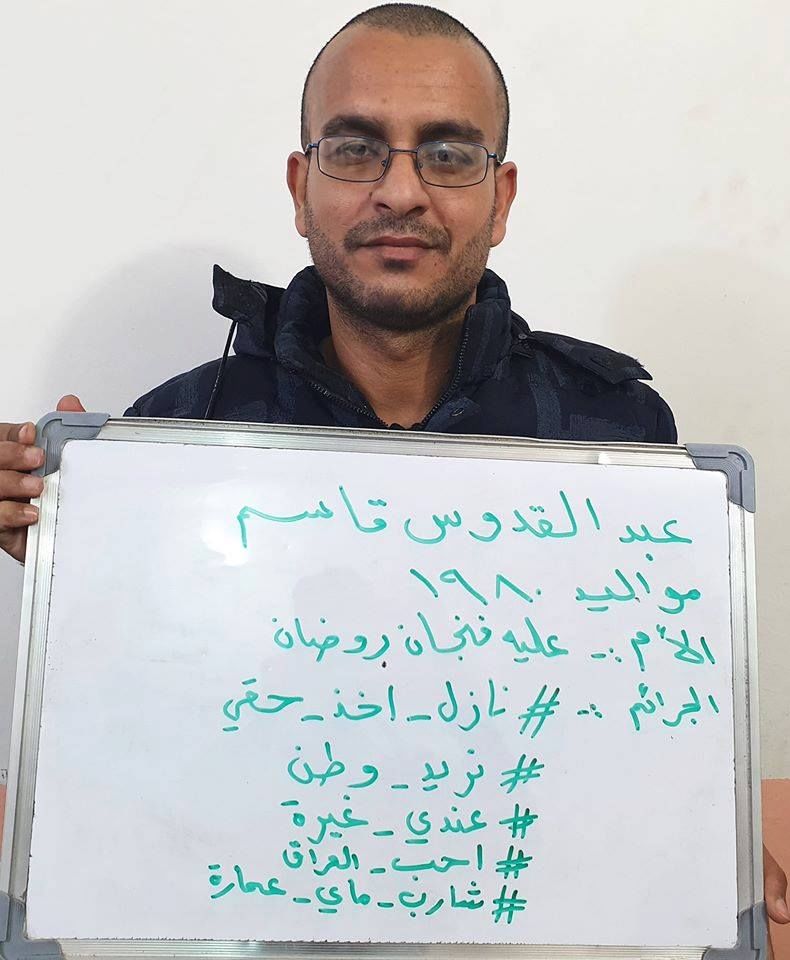 عبد القدوس قاسم
مواليد ١٩٨٠
الأم :- عليه فنجان روضان
الجرائم :- # نازل_اخذ_حقي
# نريد_وطن
# عندي_غيرة
# احب_العراق
# شارب_ماي_عمارة